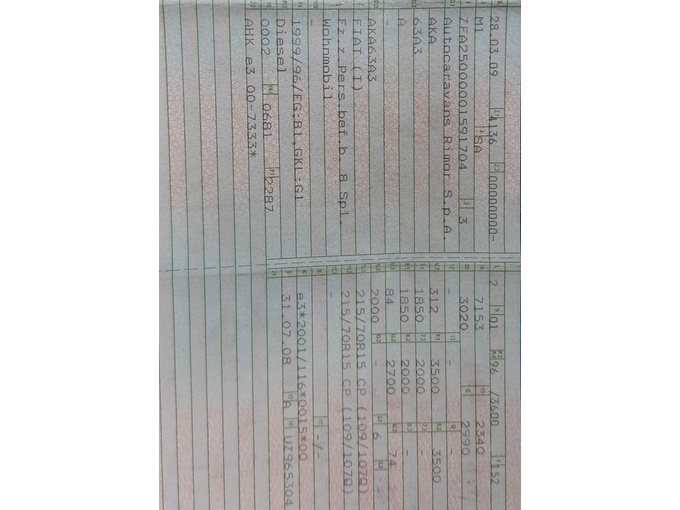 28.03.09 4136 00000000-
M1 SA
ZFA25000001591704 3
Autocaravans Rimor S.p.A.
AKA
63A3
A
AKA63A3
FIAT (I)
Fz.z.Pers.bef.b. 8 Spl.
Wohnmobil
-
1999/96/EG;B1,GKL:G1
Diesel
0002 0681 2287
AHK e3 00-7333*
2 01 96 /3600 152
7153 2340
3020 - 2990 -
- - -
312 3500 3500
1850 2000 -
1850 2000 -
84 2700 74
2000 - 6 -
215/70R15 CP (109/107Q)
215/70R15 CP (109/107Q)
-
- -/-
e3*2001/116*0015*00
31.07.08 A UZ965304